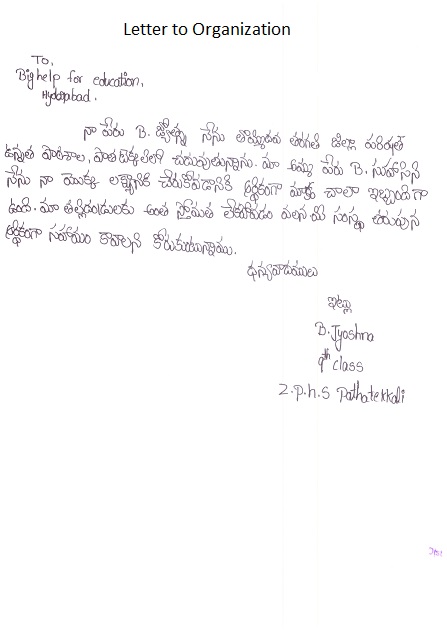 Letter to Organization
To,
Big help for education,
Hyderabad.
నా పేరు B. జ్యోత్స్న నేను తొమ్మిదవ తరగతి జిల్లా పరిషత్
ఉన్నత పాఠశాల, పాతటెక్కలిలో చదువుతున్నాను. మా అమ్మ పేరు B. సుహాసిని
నేను నా యొక్క లక్ష్యానికి చేరుకోవడానికి ఆర్థికంగా మాత్రం చాలా ఇబ్బందిగా
ఉంది. మా తల్లిదండ్రులకు అంత స్తోమత లేకపోవడం వలన మీ సంస్థ తరుపున
ఆర్థికంగా సహాయం కావాలని కోరుకుంటున్నాము.
ధన్యవాదములు
ఇట్లు
B. Jyoshna
9th class
Z.p.h.s Pathatekkali